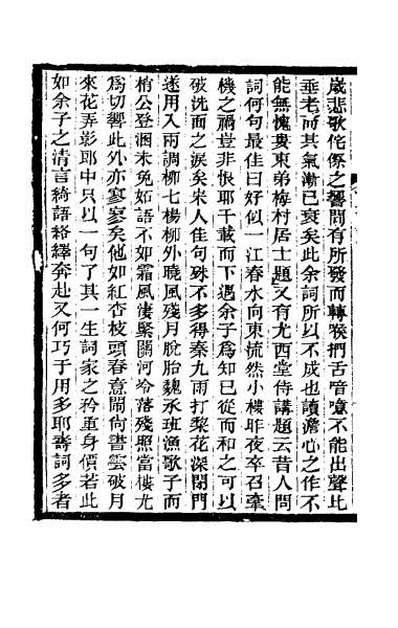 歲悲歌侘傺之響間有所發而轉喉捫舌喑噫不能出聲比
垂老而其氣漸已衰矣此余詞所以不成也讀澹心之作不
能無愧婁東弟梅村居士題又有尤西堂侍講題云昔人問
詞何句最佳曰好似一江春水向東流然小樓昨夜卒召牽
機之禍豈非恨耶千載而下遇余子爲知己從而和之可以
破涕而之淚矣宋人佳句殊不多得秦九雨打棃花深閉門
遂用入兩調柳七楊柳外曉風殘月脫胎魏承班漁歌子而
梢公登溷未免妬語不如霜風悽緊關河冷落殘照當樓尤
爲切響此外亦寥寥矣他如紅杏枝頭春意閙尚書雲破月
來花弄影郎中只以一句了其一生詞家之矜重身價若此
如余子之清言綺語絡繹奔赴又何巧于用多耶壽詞多者